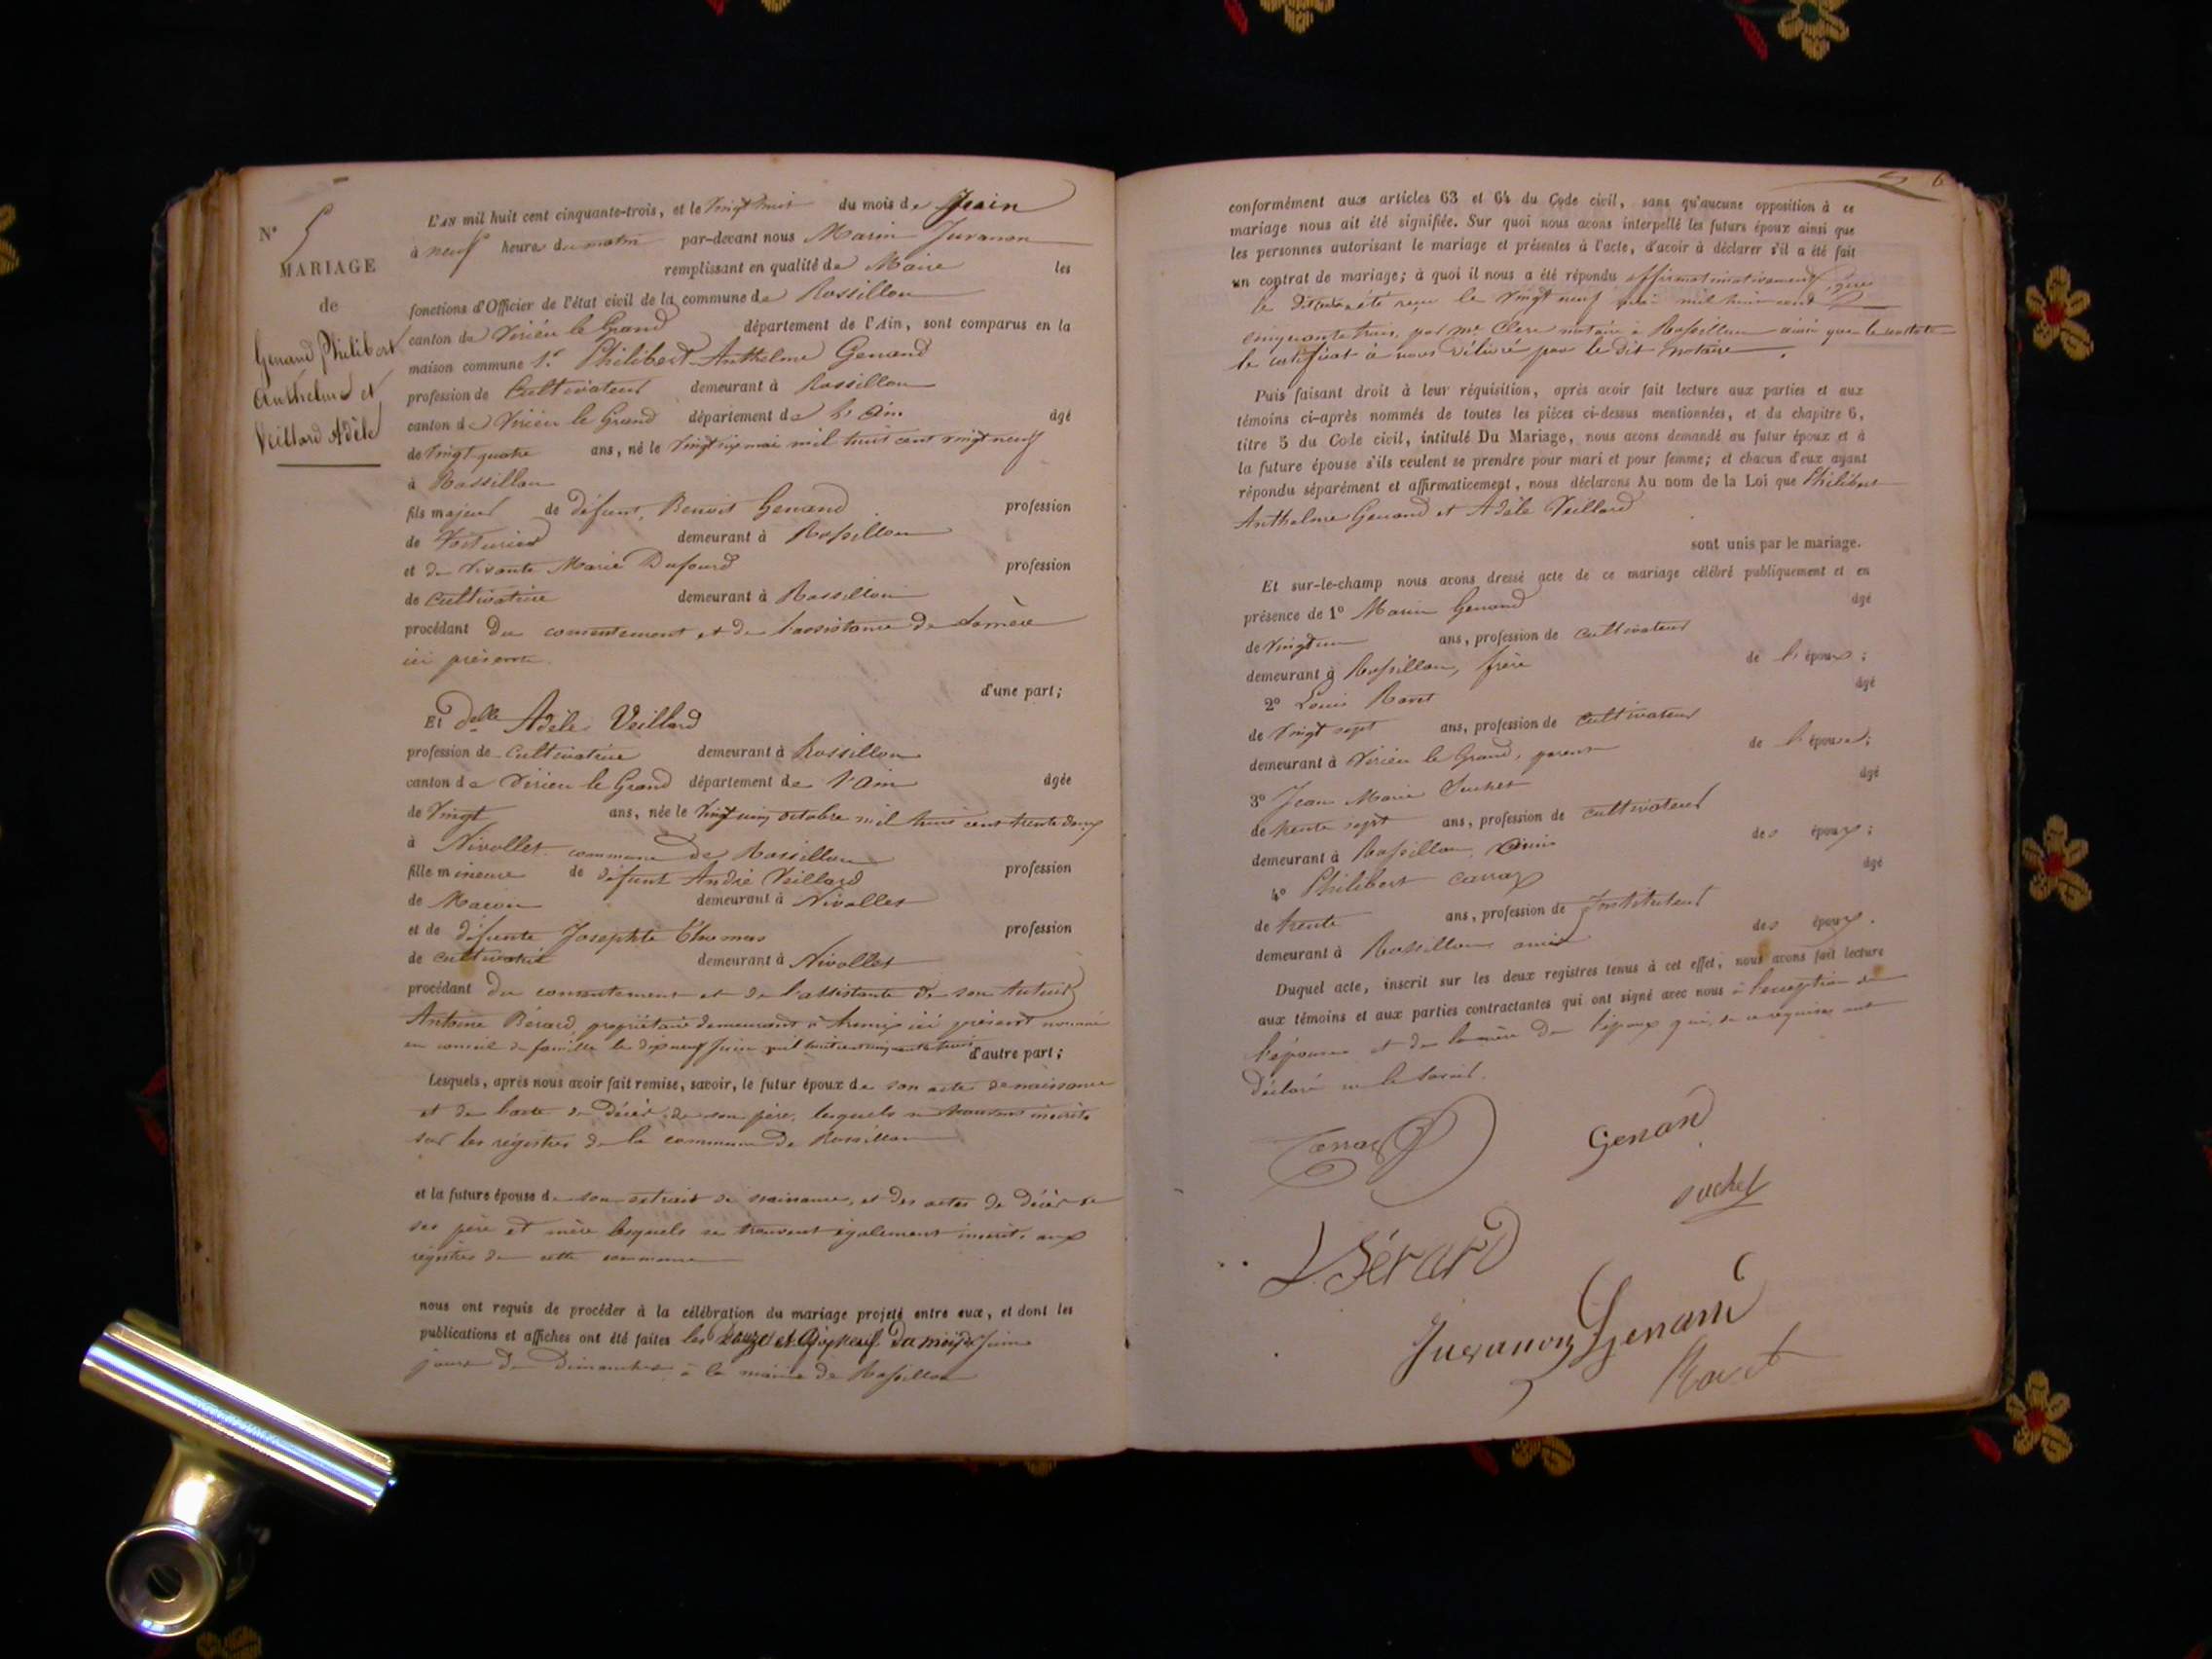 N° 5
MARIAGE
de
Genand Philibert
Anthelme et
Veillard Adèle
L'AN mil huit cent cinquante-trois, et le vingt huit du mois de Juin
à neuf heures du matin par-devant nous Marin Juvanon
remplissant en qualité de Maire les
fonctions d'Officier de l'état civil de la commune de Rossillon
canton de Virieu le Grand département de l'Ain, sont comparus en la
maison commune 1° Philibert Anthelme Genand
profession de Cultivateur demeurant à Rossillon
canton de Virieu le Grand département de l'Ain âgé
de vingt quatre ans, né le vingt six mai mil huit cent vingt neuf
à Rossillon
fils majeur de défunt Benoit Genand profession
de Voiturier demeurant à Rossillon
et de vivante Marie Dufourd profession
de cultivatrice demeurant à Rossillon
procédant du consentement et de l'assistance de sa mère
ici présente
d'une part;
Et delle Adèle Veillard
profession de cultivatrice demeurant à Rossillon
canton de Virieu le Grand département de l'Ain âgée
de vingt ans, née le vingt cinq octobre mil huit cent trente deux
à Nivollet commune de Rossillon
fille mineure de défunt André Veillard profession
de Maçon demeurant à Nivollet
et de défunte Josephte Thomas profession
de cultivatrice demeurant à Nivollet
procédant du consentement et de l'assistante de son tuteur
Antoine Bérard, propriétaire demeurant à ici présent nommé
en conseil de famille le dix neuf Juin mil huit cent cinquante trois d'autre part;
Lesquels, après nous avoir fait remise, savoir, le futur époux de son acte de naissance
et de l'acte de décès de son père, lesquels se trouvent inscrits
sur les registres de la commune de Rossillon
et la future épouse de son extrait de naissance, et des actes de décès de
ses père et mère lesquels se trouvent également inscrits aux
registres de cette commune
nous ont requis de procéder à la célébration du mariage projeté entre eux, et dont les
publications et affiches ont été faites les Douze et dix neuf du mois de Juin
jours de Dimanches, à la mairie de Rossillon
6
conformément aux articles 63 et 64 du Code civil, sans qu'aucune opposition à ce
mariage nous ait été signifiée. Sur quoi nous avons interpellé les futurs époux ainsi que
les personnes autorisant le mariage et présentes à l'acte, d'avoir à déclarer s'il a été fait
un contrat de mariage; à quoi il nous a été répondu affirmativement, que
le dit a été reçu le vingt neuf mai mil huit cent
cinquante trois, par me Clerc notaire à Rossillon ainsi que le constate
le certificat à nous délivré par le dit notaire.
Puis faisant droit à leur réquisition, après avoir fait lecture aux parties et aux
témoins ci-après nommés de toutes les pièces ci-dessus mentionnées, et du chapitre 6,
titre 5 du Code civil, intitulé Du Mariage, nous avons demandé au futur époux et à
la future épouse s'ils veulent se prendre pour mari et pour femme; et chacun d'eux ayant
répondu séparément et affirmativement, nous déclarons Au nom de la Loi que Philibert
Anthelme Genand et Adèle Veillard
sont unis par le mariage.
Et sur-le-champ nous avons dressé acte de ce mariage célébré publiquement et en
présence de 1° Marin Genand âgé
de vingt un ans, profession de cultivateur
demeurant à Rossillon, frère de l'époux;
2° Louis Ravet âgé
de vingt sept ans, profession de cultivateur
demeurant à Virieu le Grand, parent de l'épouse;
3° Jean Marie Suchet âgé
de trente sept ans, profession de cultivateur
demeurant à Rossillon, amis des époux;
4° Philibert Carraz âgé
de trente ans, profession de Instituteur
demeurant à Rossillon ami des époux.
Duquel acte, inscrit sur les deux registres tenus à cet effet, nous avons fait lecture
aux témoins et aux parties contractantes qui ont signé avec nous à l'exception de
l'épouse et de la mère de l'époux qui, de ce requises ont
déclaré ne le savoir.
Carraz
Genan
suchet
Bérard
Juvanon
Genand
Ravet